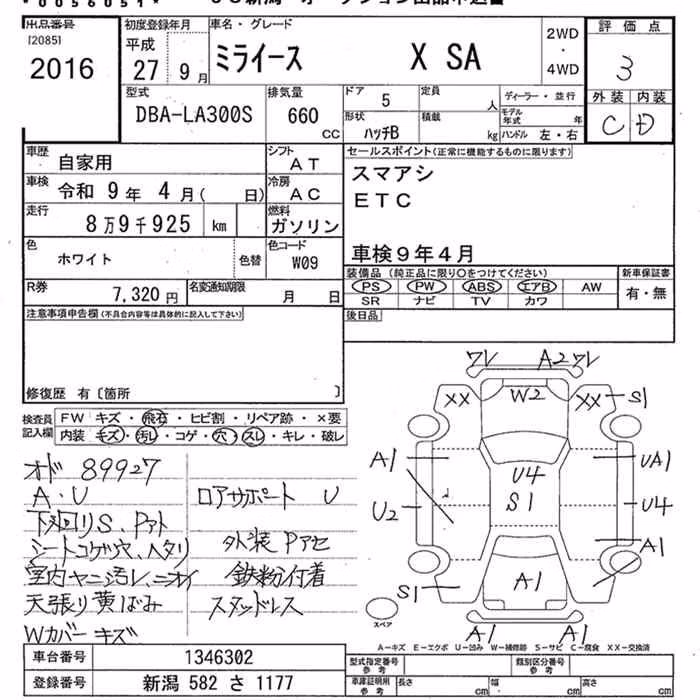 *0056051*
出品番号
[2085]
2016
初度登録年月
平成
27 9月
車名・グレード
ミライース X SA
2WD
・
4WD
評価点
3
外装 内装
C D
型式
DBA-LA300S
排気量
660
CC
ドア
5
形状
ハッチB
定員
人
積載
kg
ディーラー・並行
モデル年式 年
ハンドル 左・右
車歴
自家用
シフト
AT
車検
令和 9年 4月( 日)
冷房
AC
走行
8万9千925 km
燃料
ガソリン
色
ホワイト
色替
色コード
W09
R券
7,320円
名変通知期限
月 日
セールスポイント(正常に機能するものに限ります)
スマアシ
ETC
車検9年4月
装備品(純正品に限り○をつけてください)
PS PW ABS エアB AW
SR ナビ TV カワ
新車保証書
有・無
後日品
注意事項申告欄(不具合内容等は具体的に記入して下さい)
修復歴 有〔箇所 〕
検査員
記入欄
FW キズ・飛石・ヒビ割・リペア跡・×要
内装 キズ・汚レ・コゲ・穴・スレ・キレ・破レ
オド 89927
A・U
下廻りS、Pアト
シートコゲ穴、ヘタリ
室内ヤニ汚レ、ニオイ
天張り黄ばみ
Wカバーキズ
ロアサポート U
外装Pアセ
鉄粉付着
スタッドレス
ワレ A2ワレ
XX W2 XX S1
A1 UA1
U4
U2 S1 U4
A1
S1 A1
スペア
A1 A1
A－キズ E－エクボ U－凹み W－補修跡 S－サビ C－腐食 XX－交換済
車台番号
1346302
登録番号
新潟 582 さ 1177
型式指定番号
参考
類別区分番号
参考
車庫証明用
参考
長さ cm
幅 cm
高さ cm